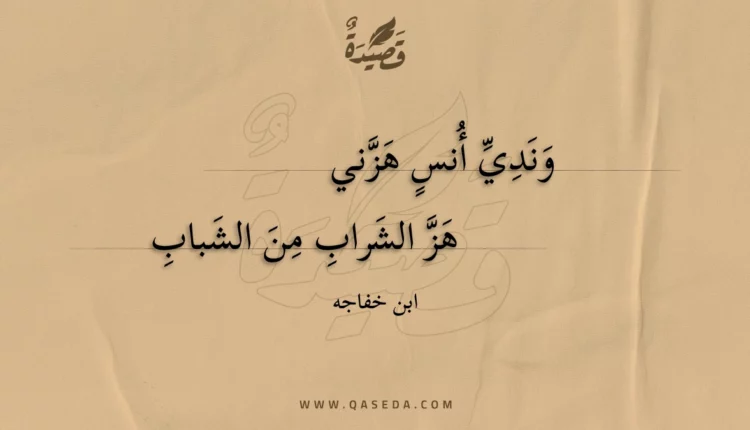 قَصِيْدَةٌ
وَنَدِيِّ أُنسٍ هَزَّني
هَزَّ الشَرابِ مِنَ الشَبابِ
ابن خفاجه
WWW.QASEDA.COM